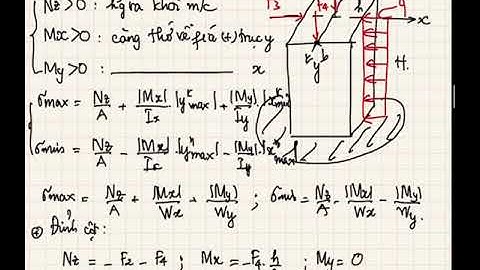 Nz>0 : hg ra khỏi m/c
Mx>0 : căng thớ về fía (+) trục y
My>0 : ———————— x
σmax = Nz/A + |Mx|/Ix · |y^k max| + |My|/Iy · |x^k max|
σmin = Nz/A - |Mx|/Ix · |y^n max| - |My|/Iy · |x^n max|
σmax = Nz/A + |Mx|/Wx + |My|/Wy ; σmin = Nz/A - |Mx|/Wx - |My|/Wy.
⊕ Đỉnh cột:
Nz = - F2 - F4 ; Mx = -F4 · h/ ; My = 0
F3
F4
h
q
x
b
y
H.